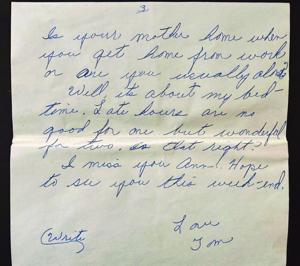 3.
Is your mother home when
you get home from work
or are you usually alone?
Well its about my bed-
time. Late hours are no
good for one but wonderful
for two. Is that right?
I miss you Ann. Hope
to see you this week-end.
Love
(Write) Tom